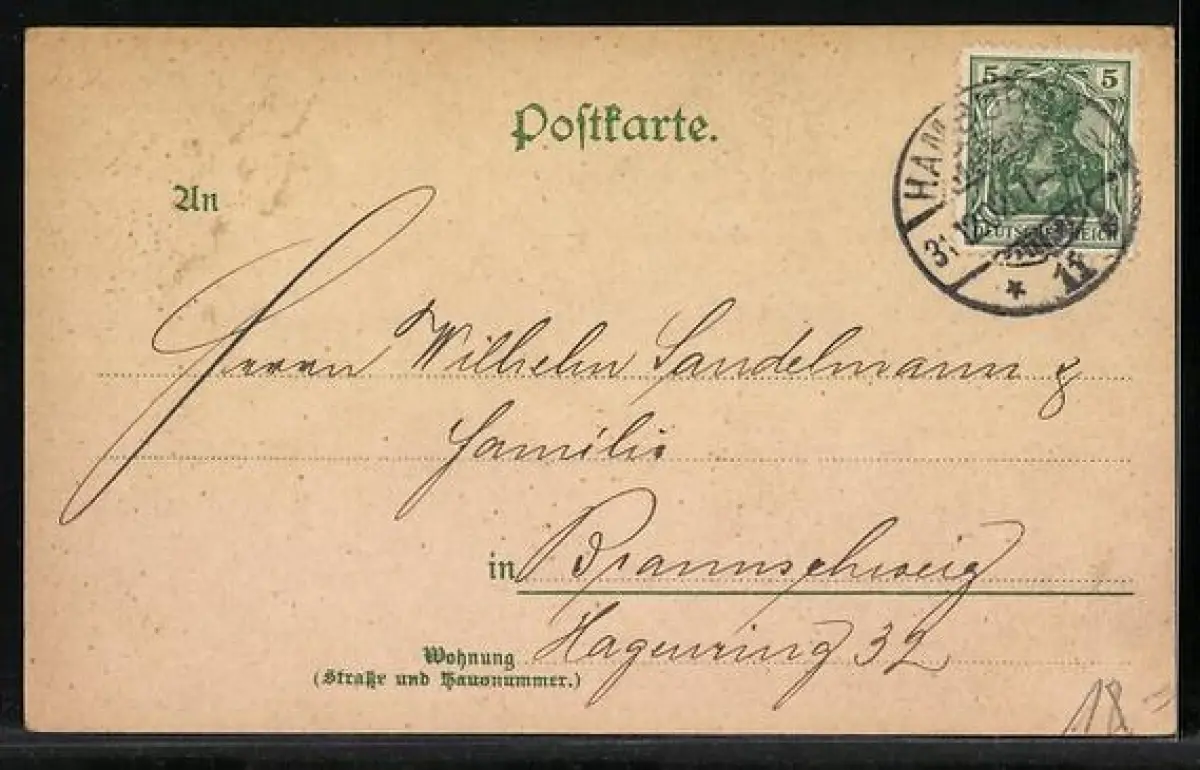 5 5
DEUTSCHES REICH
HAM
31.12.0
* 11
Postkarte.
An
Herrn Wilhelm Sandelmann &
Familie
in Braunschweig
Wohnung Hagenring 32
(Straße und Hausnummer.)
18